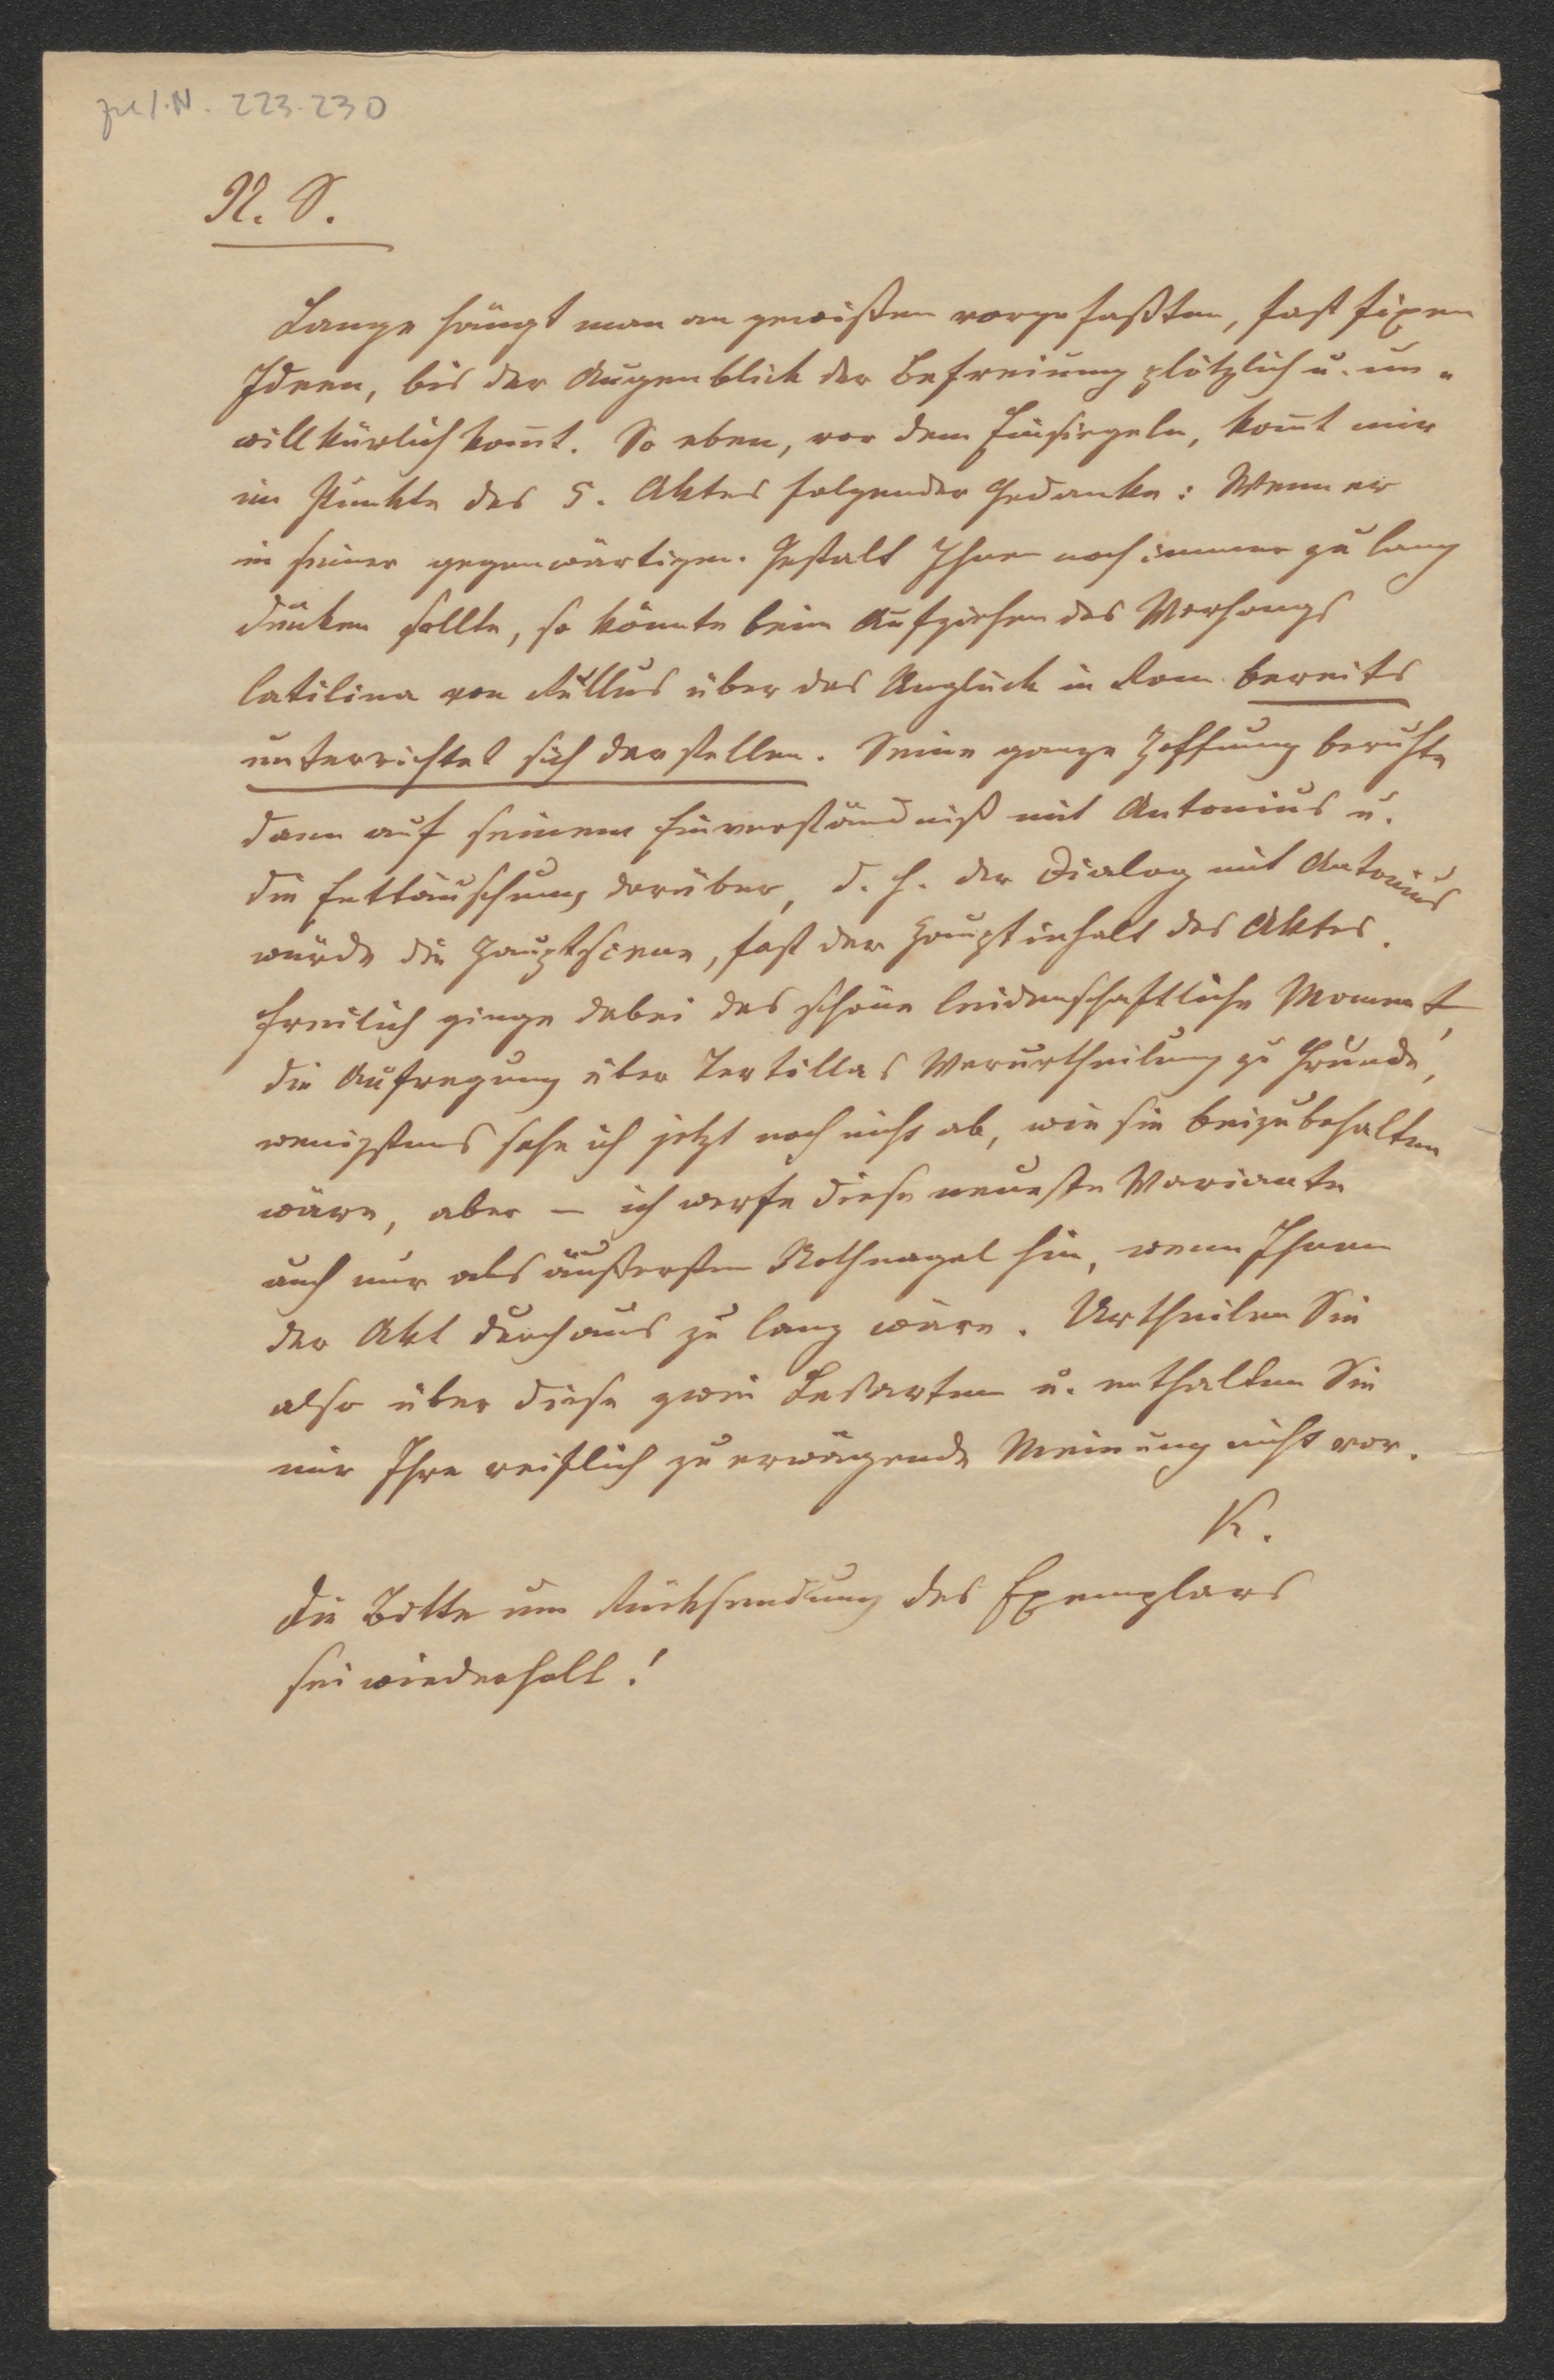 zu I.N. 223.230
N. S.
Lange hängt man an gewißen vorgefaßten, fast fixen
Ideen, bis der Augenblick der Befreiung plötzlich u. un-
willkürlich kom̄t. So eben, vor dem Einsiegeln, kom̄t mir
im Punkte des 5. Aktes folgender Gedanke: Wenn er
in seiner gegenwärtigen Gestalt Ihnen noch immer zu lang
dünken sollte, so könnte beim Aufziehen des Vorhangs
Catilina von Rullus über das Unglück in Rom bereits
unterrichtet sich darstellen. Seine ganze Hoffnung beruhte
dann auf seinem Einverständniß mit Antonius u.
die Enttäuschung darüber, d. h. der Dialog mit Antonius
würde die Hauptscene, fast der Hauptinhalt des Aktes.
Freilich ginge dabei das schöne leidenschaftliche Moment,
die Aufregung über Tertillas Verurtheilung zu Grunde,
wenigstens sehe ich jetzt noch nicht ab, wie sie beizubehalten
wäre, aber – ich werfe diese neueste Variante
auch nur als äußersten Nothnagel hin, wenn Ihnen
der Akt durchaus zu lang wäre. Urtheilen Sie
also über diese zwei Lesarten u. enthalten Sie
mir Ihre reiflich zu erwägende Meinung nicht vor.
K.
Die Bitte um Rücksendung des Exemplars
sei wiederholt!